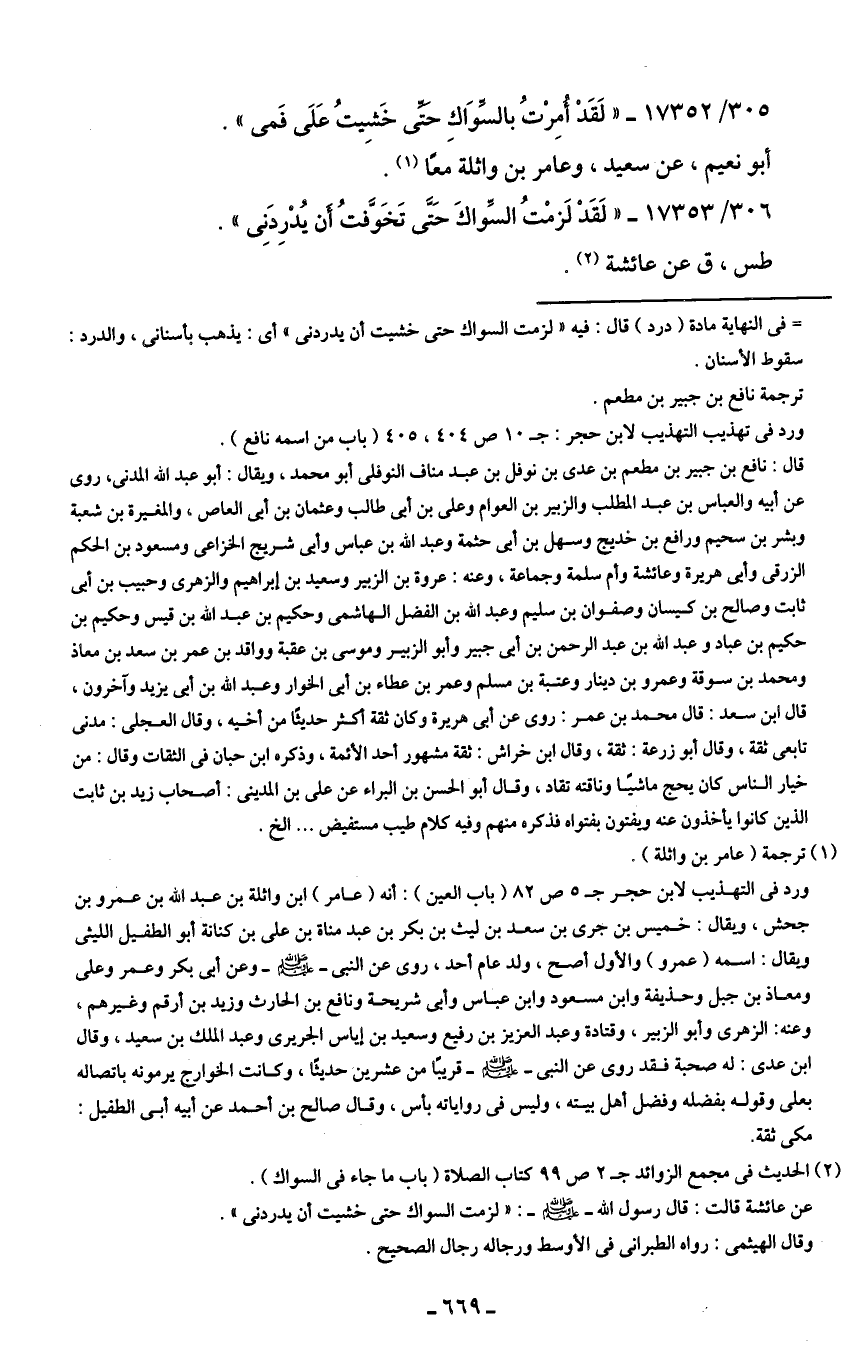 ٣٠٥/ ١٧٣٥٢ ـ « لَقَدْ أُمِرْتُ بالسِّوَاكِ حَتِّى خَشِيتُ عَلَى فَمِى » .
أبو نعيم ، عن سعيد ، وعامر بن واثلة معًا (١) .
٣٠٦/ ١٧٣٥٣ ـ « لَقَدْ لَزِمْتُ السِّواكَ حَتَّى تَخَوَّفتُ أَن يُدْرِدَنِى » .
طس ، ق عن عائشة (٢) .
= فى النهاية مادة ( درد ) قال : فيه « لزمت السواك حتى خشيت أن يدردنى » أى : يذهب بأسنانى ، والدرد :
سقوط الأسنان .
ترجمة نافع بن جبير بن مطعم .
ورد فى تهذيب التهذيب لابن حجر : جـ ١٠ ص ٤٠٤ ، ٤٠٥ ( باب من اسمه نافع ) .
قال : نافع بن جبير بن مطعم بن عدى بن نوفل بن عبد مناف النوفلى أبو محمد ، ويقال : أبو عبد الله المدنى، روى
عن أبيه والعباس بن عبد المطلب والزبير بن العوام وعلى بن أبى طالب وعثمان بن أبى العاص ، والمغيرة بن شعبة
وبشر بن سحيم ورافع بن خديج وسهل بن أبى حثمة وعبد الله بن عباس وأبى شريح الخزاعى ومسعود بن الحكم
الزرقى وأبى هريرة وعائشة وأم سلمة وجماعة ، وعنه : عروة بن الزبير وسعيد بن إبراهيم والزهرى وحبيب بن أبى
ثابت وصالح بن كيسان وصفوان بن سليم وعبد الله بن الفضل الهاشمى وحكيم بن عبد الله بن قيس وحكيم بن
حكيم بن عباد و عبد الله بن عبد الرحمن بن أبى جبير وأبو الزبير وموسى بن عقبة وواقد بن عمر بن سعد بن معاذ
ومحمد بن سوقة وعمرو بن دينار وعتبة بن مسلم وعمر بن عطاء بن أبى الخوار وعبد الله بن أبى يزيد وآخرون ،
قال ابن سعد : قال محمد بن عمر : روى عن أبى هريرة وكان ثقة أكثر حديثًا من أخيه ، وقال العجلى : مدنى
تابعى ثقة ، وقال أبو زرعة : ثقة ، وقال ابن خراش : ثقة مشهور أحد الأئمة ، وذكره ابن حبان فى الثقات وقال : من
خيار الناس كان يحج ماشيًا وناقته تقاد ، وقال أبو الحسن بن البراء عن على بن المدينى : أصحاب زيد بن ثابت
الذين كانوا يأخذون عنه ويفتون بفتواه فذكره منهم وفيه كلام طيب مستفيض ... الخ .
(١) ترجمة ( عامر بن واثلة ) .
ورد فى التهذيب لابن حجر جـ ٥ ص ٨٢ ( باب العين ) : أنه ( عامر ) ابن واثلة بن عبد الله بن عمرو بن
جحش ، ويقال : خميس بن جرى بن سعد بن ليث بن بكر بن عبد مناة بن على بن كنانة أبو الطفيل الليثى
ويقال : اسمه ( عمرو ) والأول أصح ، ولد عام أحد ، روى عن النبى ـ ﷺ ـ وعن أبى بكر وعمر وعلى
ومعاذ بن جبل وحذيفة وابن مسعود وابن عباس وأبى شريحة ونافع بن الحارث وزيد بن أرقم وغيرهم ،
وعنه: الزهرى وأبو الزبير ، وقتادة وعبد العزيز بن رفيع وسعيد بن إياس الجريرى وعبد الملك بن سعيد ، وقال
ابن عدى : له صحبة فقد روى عن النبى ـ ﷺ ـ قريبًا من عشرين حديثًا ، وكانت الخوارج يرمونه باتصاله
بعلى وقوله بفضله وفضل أهل بيته ، وليس فى رواياته بأس ، وقال صالح بن أحمد عن أبيه أبى الطفيل :
مكى ثقة.
(٢) الحديث فى مجمع الزوائد جـ ٢ ص ٩٩ كتاب الصلاة ( باب ما جاء فى السواك ) .
عن عائشة قالت : قال رسول الله ـ ﷺ ـ : « لزمت السواك حتى خشيت أن يدردنى » .
وقال الهيثمى : رواه الطبرانى فى الأوسط ورجاله رجال الصحيح .
ـ ٦٦٩ ـ